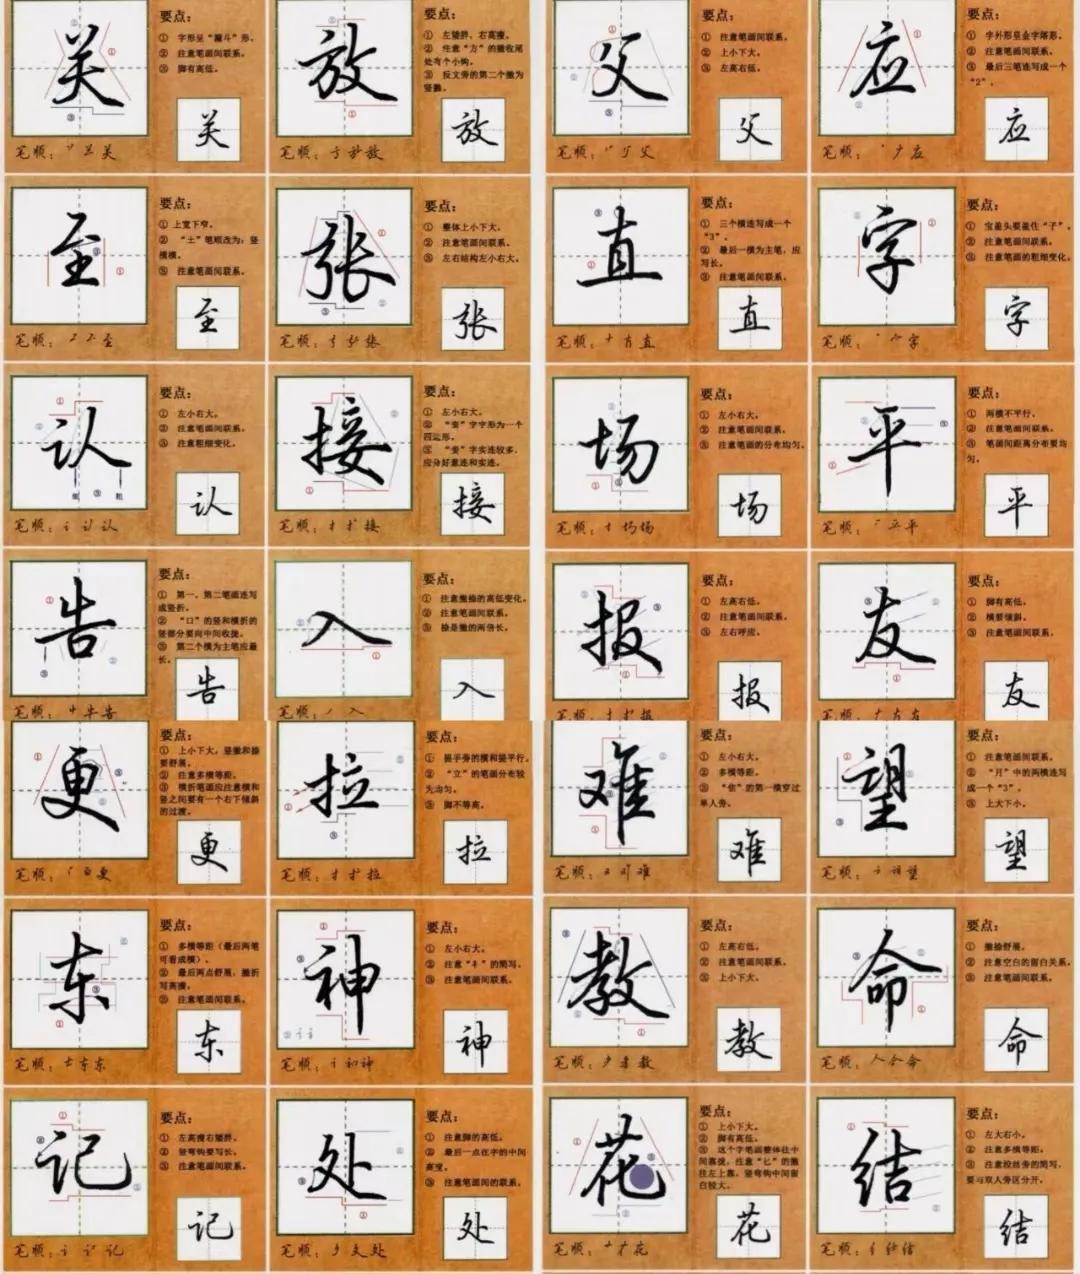 关
要点：
① 字形呈“漏斗”形。
② 注意笔画间联系。
③ 脚有高低。
关
笔顺：
放
要点：
① 左矮胖、右高瘦。
② 注意“方”的撇收尾
处有个小钩。
③ 反文旁的第二个撇为
竖撇。
放
笔顺：
父
要点：
① 注意笔画间联系。
② 上小下大。
③ 左高右低。
父
笔顺：
应
要点：
① 字外形呈金字塔形。
② 注意笔画间联系。
③ 最后三笔连写成一个
“2”。
应
笔顺：
至
要点：
① 上宽下窄。
② “土”笔顺改为：竖
横横。
③ 注意笔画间联系。
至
笔顺：
张
要点：
① 整体上小下大。
② 注意笔画间联系。
③ 左右结构左小右大。
张
笔顺：
直
要点：
① 三个横连写成一个
“3”。
② 最后一横为主笔，应
写长。
③ 注意笔画间联系。
直
笔顺：
字
要点：
① 宝盖头要盖住“子”。
② 注意笔画间联系。
③ 注意笔画的粗细变化。
字
笔顺：
认
要点：
① 左小右大。
② 注意笔画间联系。
③ 注意粗细变化。
细 ③ 粗
认
笔顺：
接
要点：
① 左小右大。
② “妾”字字形为一个
四边形。
③ “妾”字实连较多，
应分好意连和实连。
接
笔顺：
场
要点：
① 左小右大。
② 注意笔画间联系。
③ 注意笔画的分布均匀。
场
笔顺：
平
要点：
① 两横不平行。
② 注意笔画间联系。
③ 笔画间距离分布要均
匀。
平
笔顺：
告
要点：
① 第一、第二笔画连写
成竖折。
② “口”的竖和横折的
竖部分要向中间收拢。
③ 第二个横为主笔应最
长。
告
笔顺：
入
要点：
① 注意撇捺的高低变化。
② 注意笔画间联系。
③ 捺是撇的两倍长。
入
笔顺：
报
要点：
① 左高右低。
② 注意笔画间联系。
③ 左右呼应。
报
笔顺：
友
要点：
① 脚有高低。
② 横要倾斜。
③ 注意笔画间联系。
友
笔顺：
更
要点：
① 上小下大，竖撇和捺
要舒展。
② 注意多横等距。
③ 横折笔画应注意横和
竖之间要有一个右下倾斜
的过渡。
更
笔顺：
拉
要点：
① 提手旁的横和提平行。
② “立”的笔画分布较
为均匀。
③ 脚不等高。
拉
笔顺：
难
要点：
① 左小右大。
② 多横等距。
③ “隹”的第一横穿过
单人旁。
难
笔顺：
望
要点：
① 注意笔画间联系。
② “月”中的两横连写
成一个“3”。
③ 上大下小。
望
笔顺：
东
要点：
① 多横等距（最后两笔
可看成横）。
② 最后两点舒展，撇折
写高瘦。
③ 注意笔画间联系。
东
笔顺：
神
要点：
① 左小右大。
② 注意“礻”的简写。
③ 注意笔画间联系。
神
笔顺：
教
要点：
① 左高右低。
② 注意笔画间联系。
③ 上小下大。
教
笔顺：
命
要点：
① 撇捺舒展。
② 注意空白的留白关系。
③ 注意笔画间联系。
命
笔顺：
记
要点：
① 左高瘦右矮胖。
② 竖弯钩要写长。
③ 注意笔画间联系。
记
笔顺：
处
要点：
① 注意脚的高低。
② 最后一点在字的中间
高度。
③ 注意笔画间的联系。
处
笔顺：
花
要点：
① 上小下大。
② 脚有高低。
③ 这个字笔画整体往中
间靠拢，注意“匕”的撇
往左上靠，竖弯钩中间留
白较大。
花
笔顺：
结
要点：
① 左大右小。
② 注意多横等距。
③ 注意绞丝旁的简写，
要与双人旁区分开。
结
笔顺：